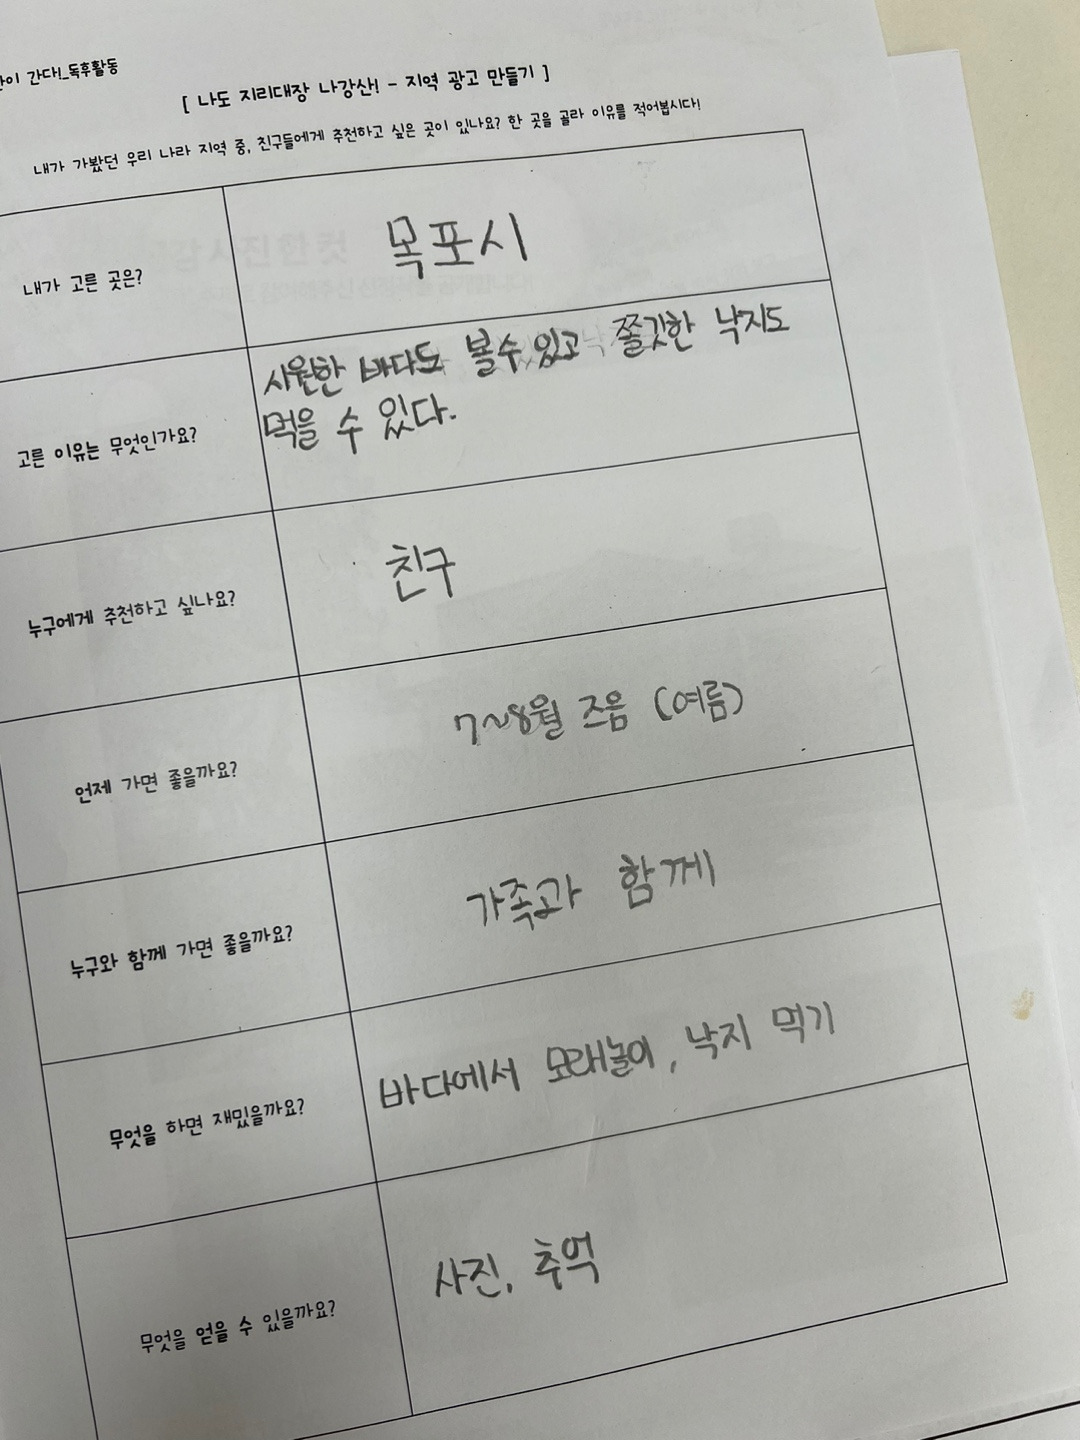 이 간다!_독후활동
[ 나도 지리대장 나강산! - 지역 광고 만들기 ]
내가 가봤던 우리 나라 지역 중, 친구들에게 추천하고 싶은 곳이 있나요? 한 곳을 골라 이유를 적어봅시다!
내가 고른 곳은?
목포시
고른 이유는 무엇인가요?
시원한 바다도 볼수 있고 쫄깃한 낙지도
먹을 수 있다.
누구에게 추천하고 싶나요?
친구
언제 가면 좋을까요?
7~8월 즈음 (여름)
누구와 함께 가면 좋을까요?
가족과 함께
무엇을 하면 재밌을까요?
바다에서 모래놀이, 낙지 먹기
무엇을 얻을 수 있을까요?
사진, 추억